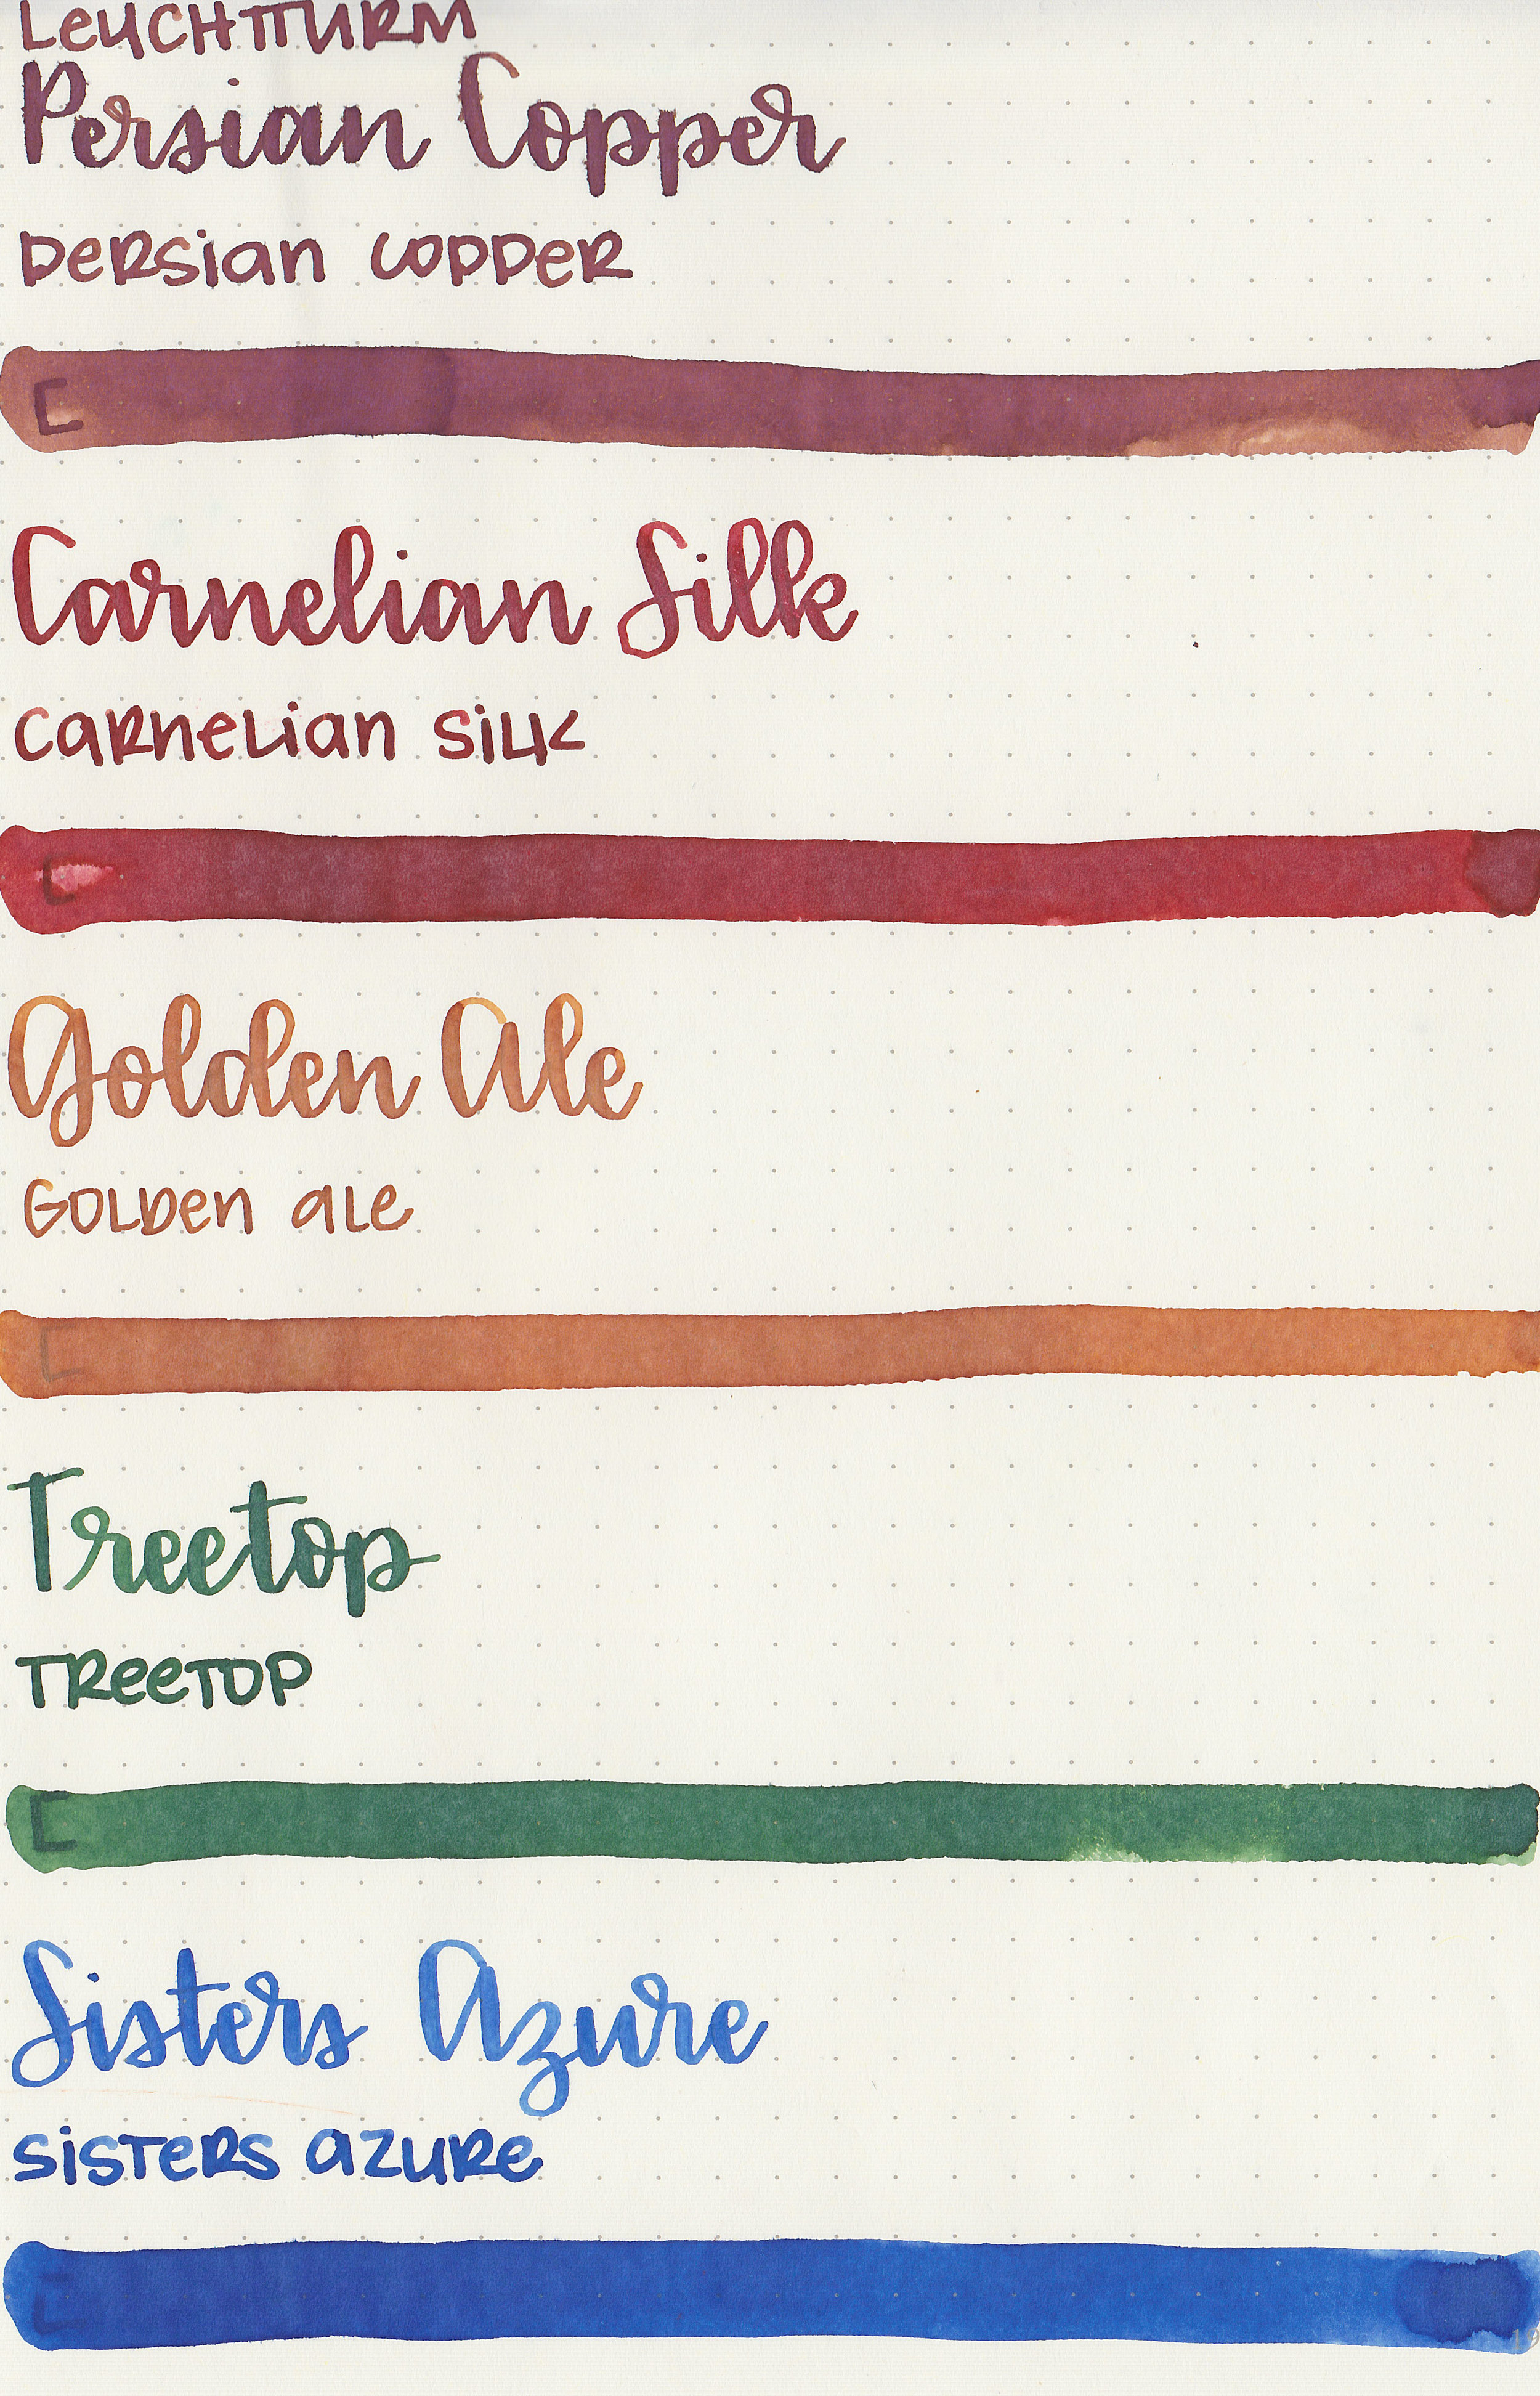 LEUCHTTURM
Persian Copper
PERSian COPPER
Carnelian Silk
CARNELian SiLK
Golden Ale
GOLDEN ALE
Treetop
TREETOP
Sisters Azure
SiSTERS AZURE
19